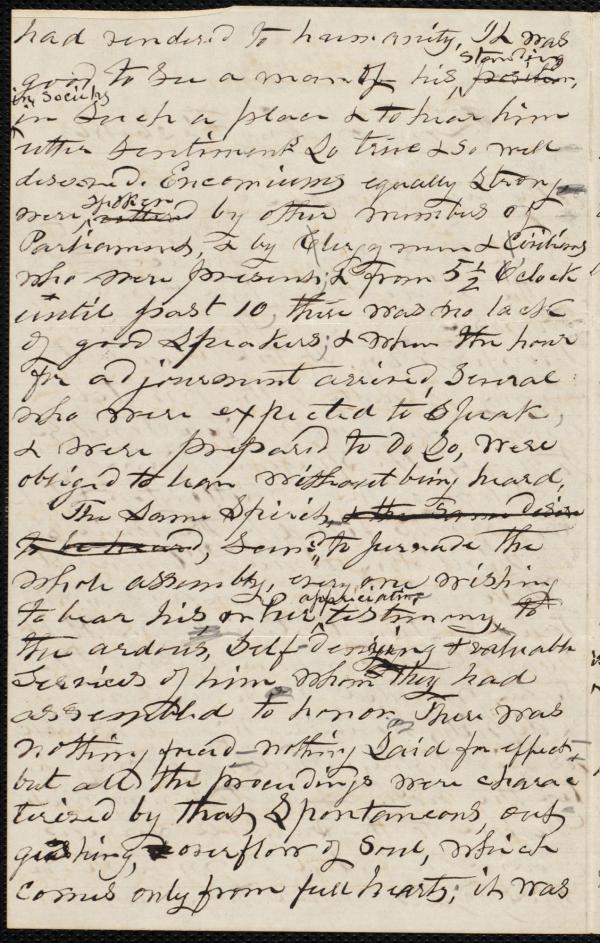 had rendered to humanity. It was
good to see a man of his standing position,
in society in such a place & to hear him
utter sentiments so true & so well
deserved. Encomiums equally strong
were spoken uttered by other members of
Parliament, & by Clergymen & Civilians
who were present; & from 5 1/2 O'clock
until past 10, there was no lack
of good speakers; & when the hour
for adjournment arrived, several
who were expected to speak,
& were prepared to do so, were
obliged to leave without being heard,
The same spirit, & the same desire
to be heard, seemed, to pervade the
whole assembly, every one wishing
to bear his or her appreciating testimony, to
the ardous, self-denying & valuable
services of him whom they had
assembled to honor. There was
nothing forced—nothing said for effect,
but all the proceedings were charac
terized by that, spontaneous, out
gushing, overflow of soul, which
comes only from full hearts; it was